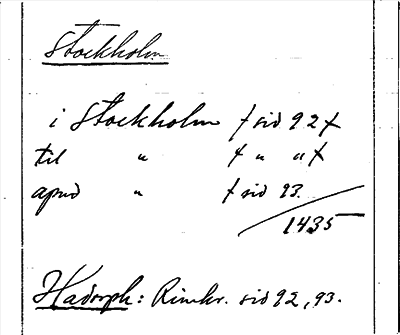 Stockholm
i Stockholm † sid 92 †
til " † " " †
apud " † sid 93.
1435
Hadorph: Rimkr. sid 92, 93.